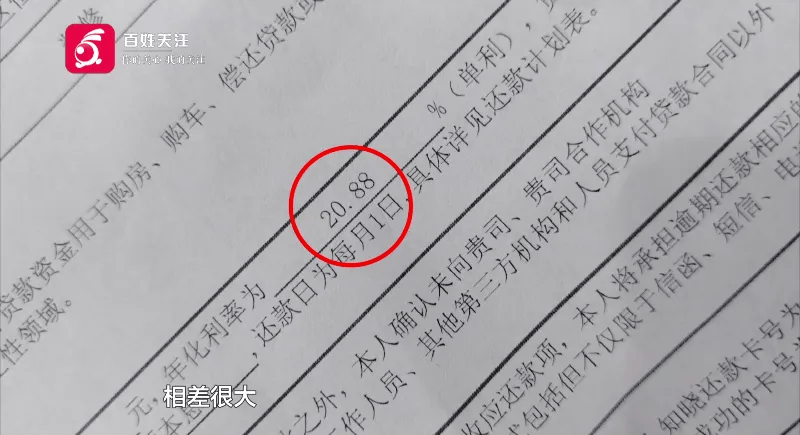 百姓关注
你的关心 我的关注
修
偿还贷款或
贷款资金用于购房、购车、
性领域。
元，年化利率为 20.88 %（单利），
，还款日为每月1日，具体详见还款计划表。
之外，本人确认未向贵司、贵司合作机构
工作人员、其他第三方机构和人员支付贷款合同以外
收应还款项，本人将承担逾期还款相应的
式包括但不仅限于信函、短信、电
知晓还款卡号为
成功的卡号为
相差很大